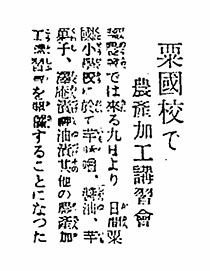 粟國校で
農產加工講習會
では來る九日より 日間粟
國小學校に於て芋味噌、醬油、芋
菓子、 油漬其他の農產加
工講習 を開催することになつた